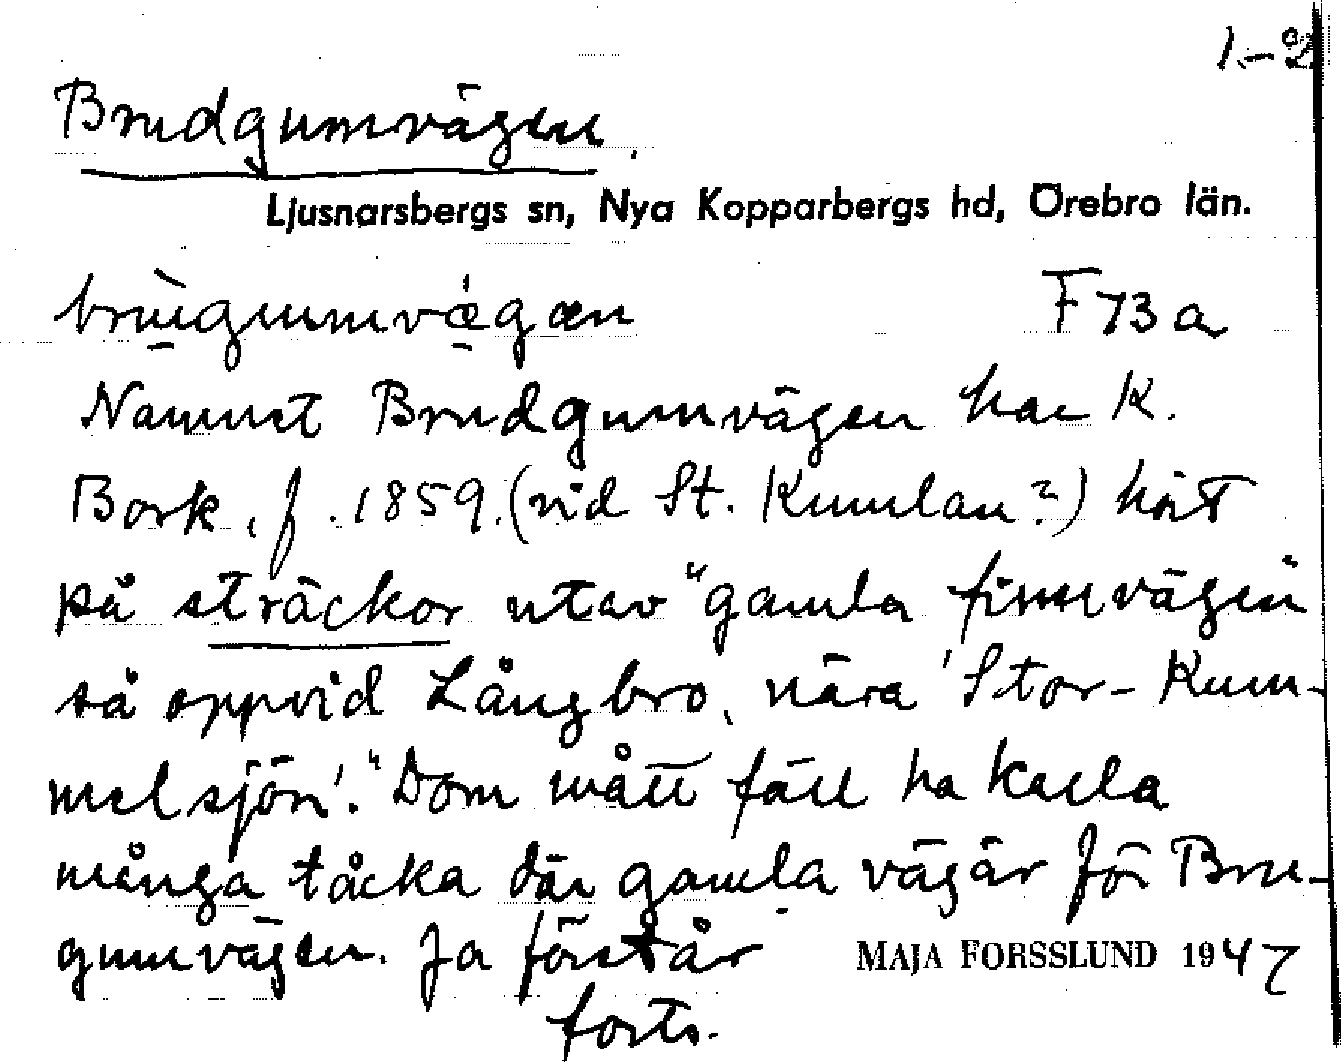 1.-2
Brudgumvägen.
Ljusnarsbergs sn, Nya Kopparbergs hd, Örebro län.
F 73 a
Namnet Brudgumvägen har K.
Bork, f. 1859. (vid St. Kumlan?) hört
på sträckor utav "gamla finnvägen"
så oppvid Långbro, nära 'Stor-Kum-
melsjön'. "Dom mått fäll ha kalla
många tåcka där gamla vägär för Bru-
gumvägen. Ja förstår
MAJA FORSSLUND 1947
forts.